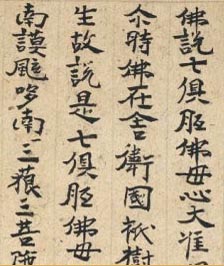 佛說七俱胝佛母心大准
尒時佛在舍衛國祇樹
生故說是七俱胝佛母
南謨颯哆南三藐三菩